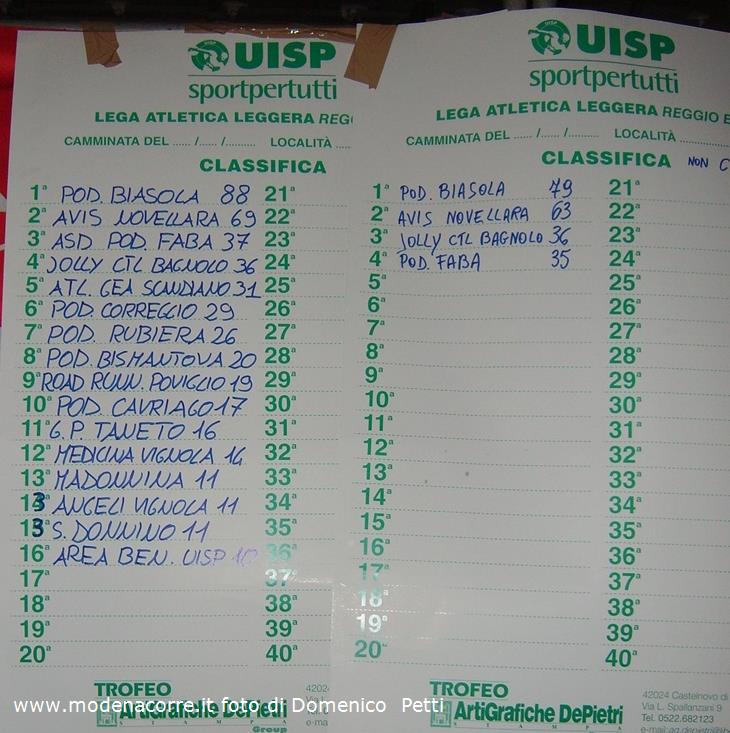 UISP
sportpertutti
LEGA ATLETICA LEGGERA REGG
CAMMINATA DEL ...... /...... /.......... LOCALITÀ ....
CLASSIFICA
1ª POD. BIASOLA 88 21ª
2ª AVIS NOVELLARA 69 22ª
3ª ASD POD. FABA 37 23ª
4ª JOLLY CTL BAGNOLO 36 24ª
5ª ATL. GEA SCANDIANO 31 25ª
6ª POD. CORREGGIO 29 26ª
7ª POD. RUBIERA 26 27ª
8ª POD. BISMANTOVA 20 28ª
9ª ROAD RUNN. POVIGLIO 19 29ª
10ª POD. CAVRIAGO 17 30ª
11ª G.P. TANETO 16 31ª
12ª MEDICINA VIGNOLA 14 32ª
13ª MADONNINA 11 33ª
13ª ANGELI VIGNOLA 11 34ª
13ª S. DONNINO 11 35ª
16ª AREA BEN. UISP 10 36ª
17ª 37ª
18ª 38ª
19ª 39ª
20ª 40ª
TROFEO
ArtiGrafiche DePietri
STAMPA
Group
42024
Via L
Tel.
e-mai
UISP
sportpertutti
LEGA ATLETICA LEGGERA REGGIO E
CAMMINATA DEL ...... /...... /.......... LOCALITÀ ..............
CLASSIFICA NON C
1ª POD. BIASOLA 79 21ª
2ª AVIS NOVELLARA 63 22ª
3ª JOLLY CTL BAGNOLO 36 23ª
4ª POD. FABA 35 24ª
5ª 25ª
6ª 26ª
7ª 27ª
8ª 28ª
9ª 29ª
10ª 30ª
11ª 31ª
12ª 32ª
13ª 33ª
14ª 34ª
15ª 35ª
16ª 36ª
17ª 37ª
18ª 38ª
19ª 39ª
20ª 40ª
TROFEO
ArtiGrafiche DePietri
STAMPA
42024 Castelnovo di
Via L. Spallanzani 9
Tel. 0522.682123
e-mail: ag.depietri@
www.modenacorre.it foto di Domenico Petti